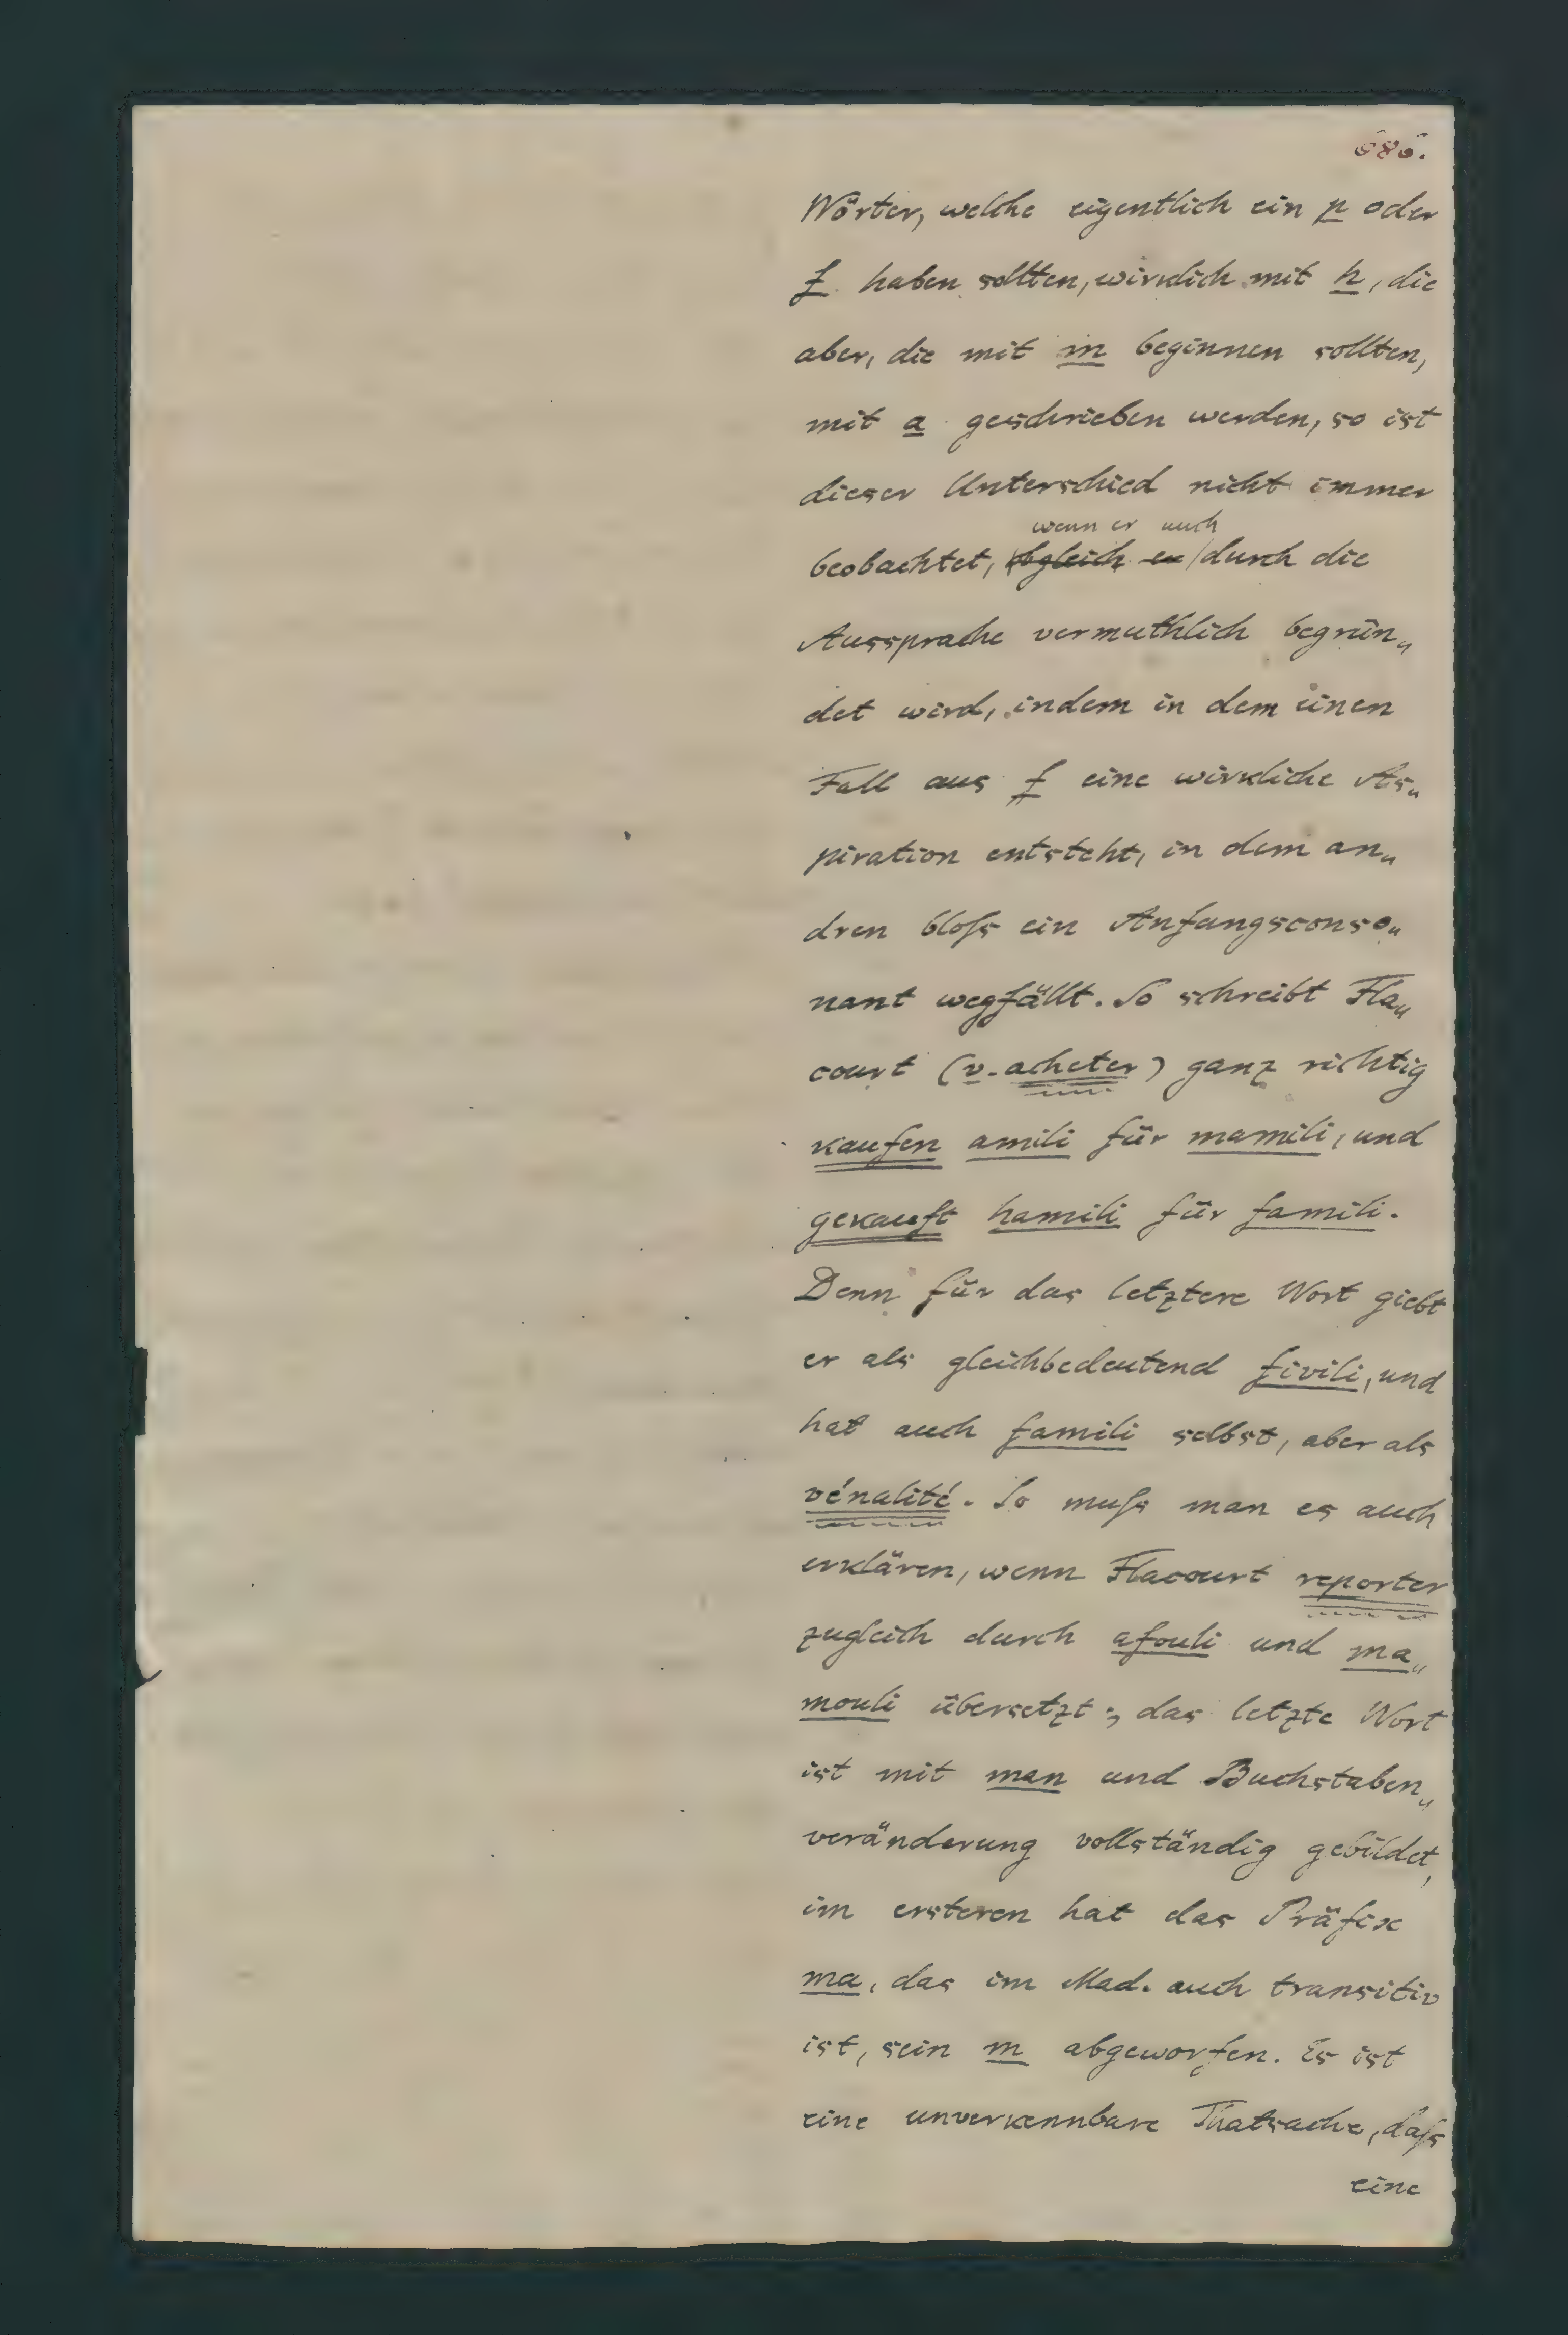 686.
Wörter, welche eigentlich ein p oder
f haben sollten, wirklich mit h, die
aber, die mit m beginnen sollten,
mit a geschrieben werden, so ist
dieser Unterschied nicht immer
wenn er auch
beobachtet, obgleich er durch die
Aussprache vermuthlich begrün„
det wird, indem in dem einen
Fall aus f eine wirkliche As„
piration entsteht, in dem an„
dren bloſs ein Anfangsconso„
nant wegfällt. So schreibt Fla„
court (v. acheter) ganz richtig
kaufen amili für mamili, und
gekauft hamili für famili.
Denn für das letztere Wort giebt
er als gleichbedeutend fivili, und
hat auch famili selbst, aber als
vénalité. So muſs man es auch
erklären, wenn Flacourt reporter
zugleich durch afouli und ma„
mouli übersetzt; das letzte Wort
ist mit man und Buchstaben„
veränderung vollständig gebildet,
im ersteren hat das Präfix
ma, das im Mad. auch transitiv
ist, sein m abgeworfen. Es ist
eine unverkennbare Thatsache, daſs
eine